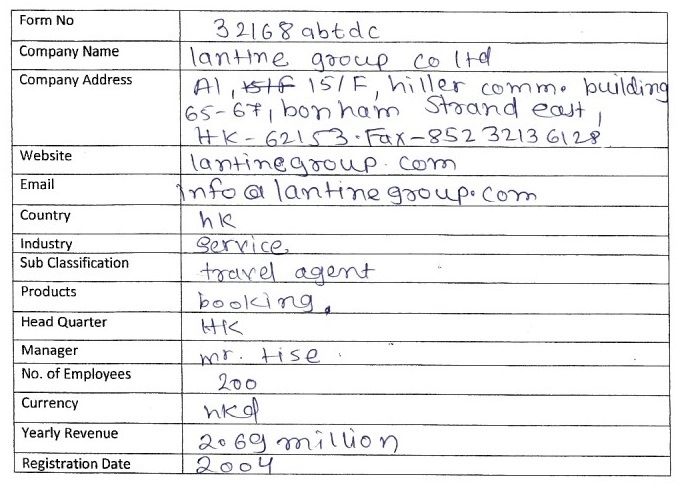 Form No 32168abtdc
Company Name lantine group co ltd
Company Address A1, 15/F 15/F, hiller comm. building
65-67, bonham Strand east,
HK-62153. Fax-852 3213 6128
Website lantinegroup.com
Email info@lantinegroup.com
Country hk
Industry Service.
Sub Classification travel agent
Products booking.
Head Quarter HK
Manager mr. tise.
No. of Employees 200
Currency hkd
Yearly Revenue 2.69 million
Registration Date 2004